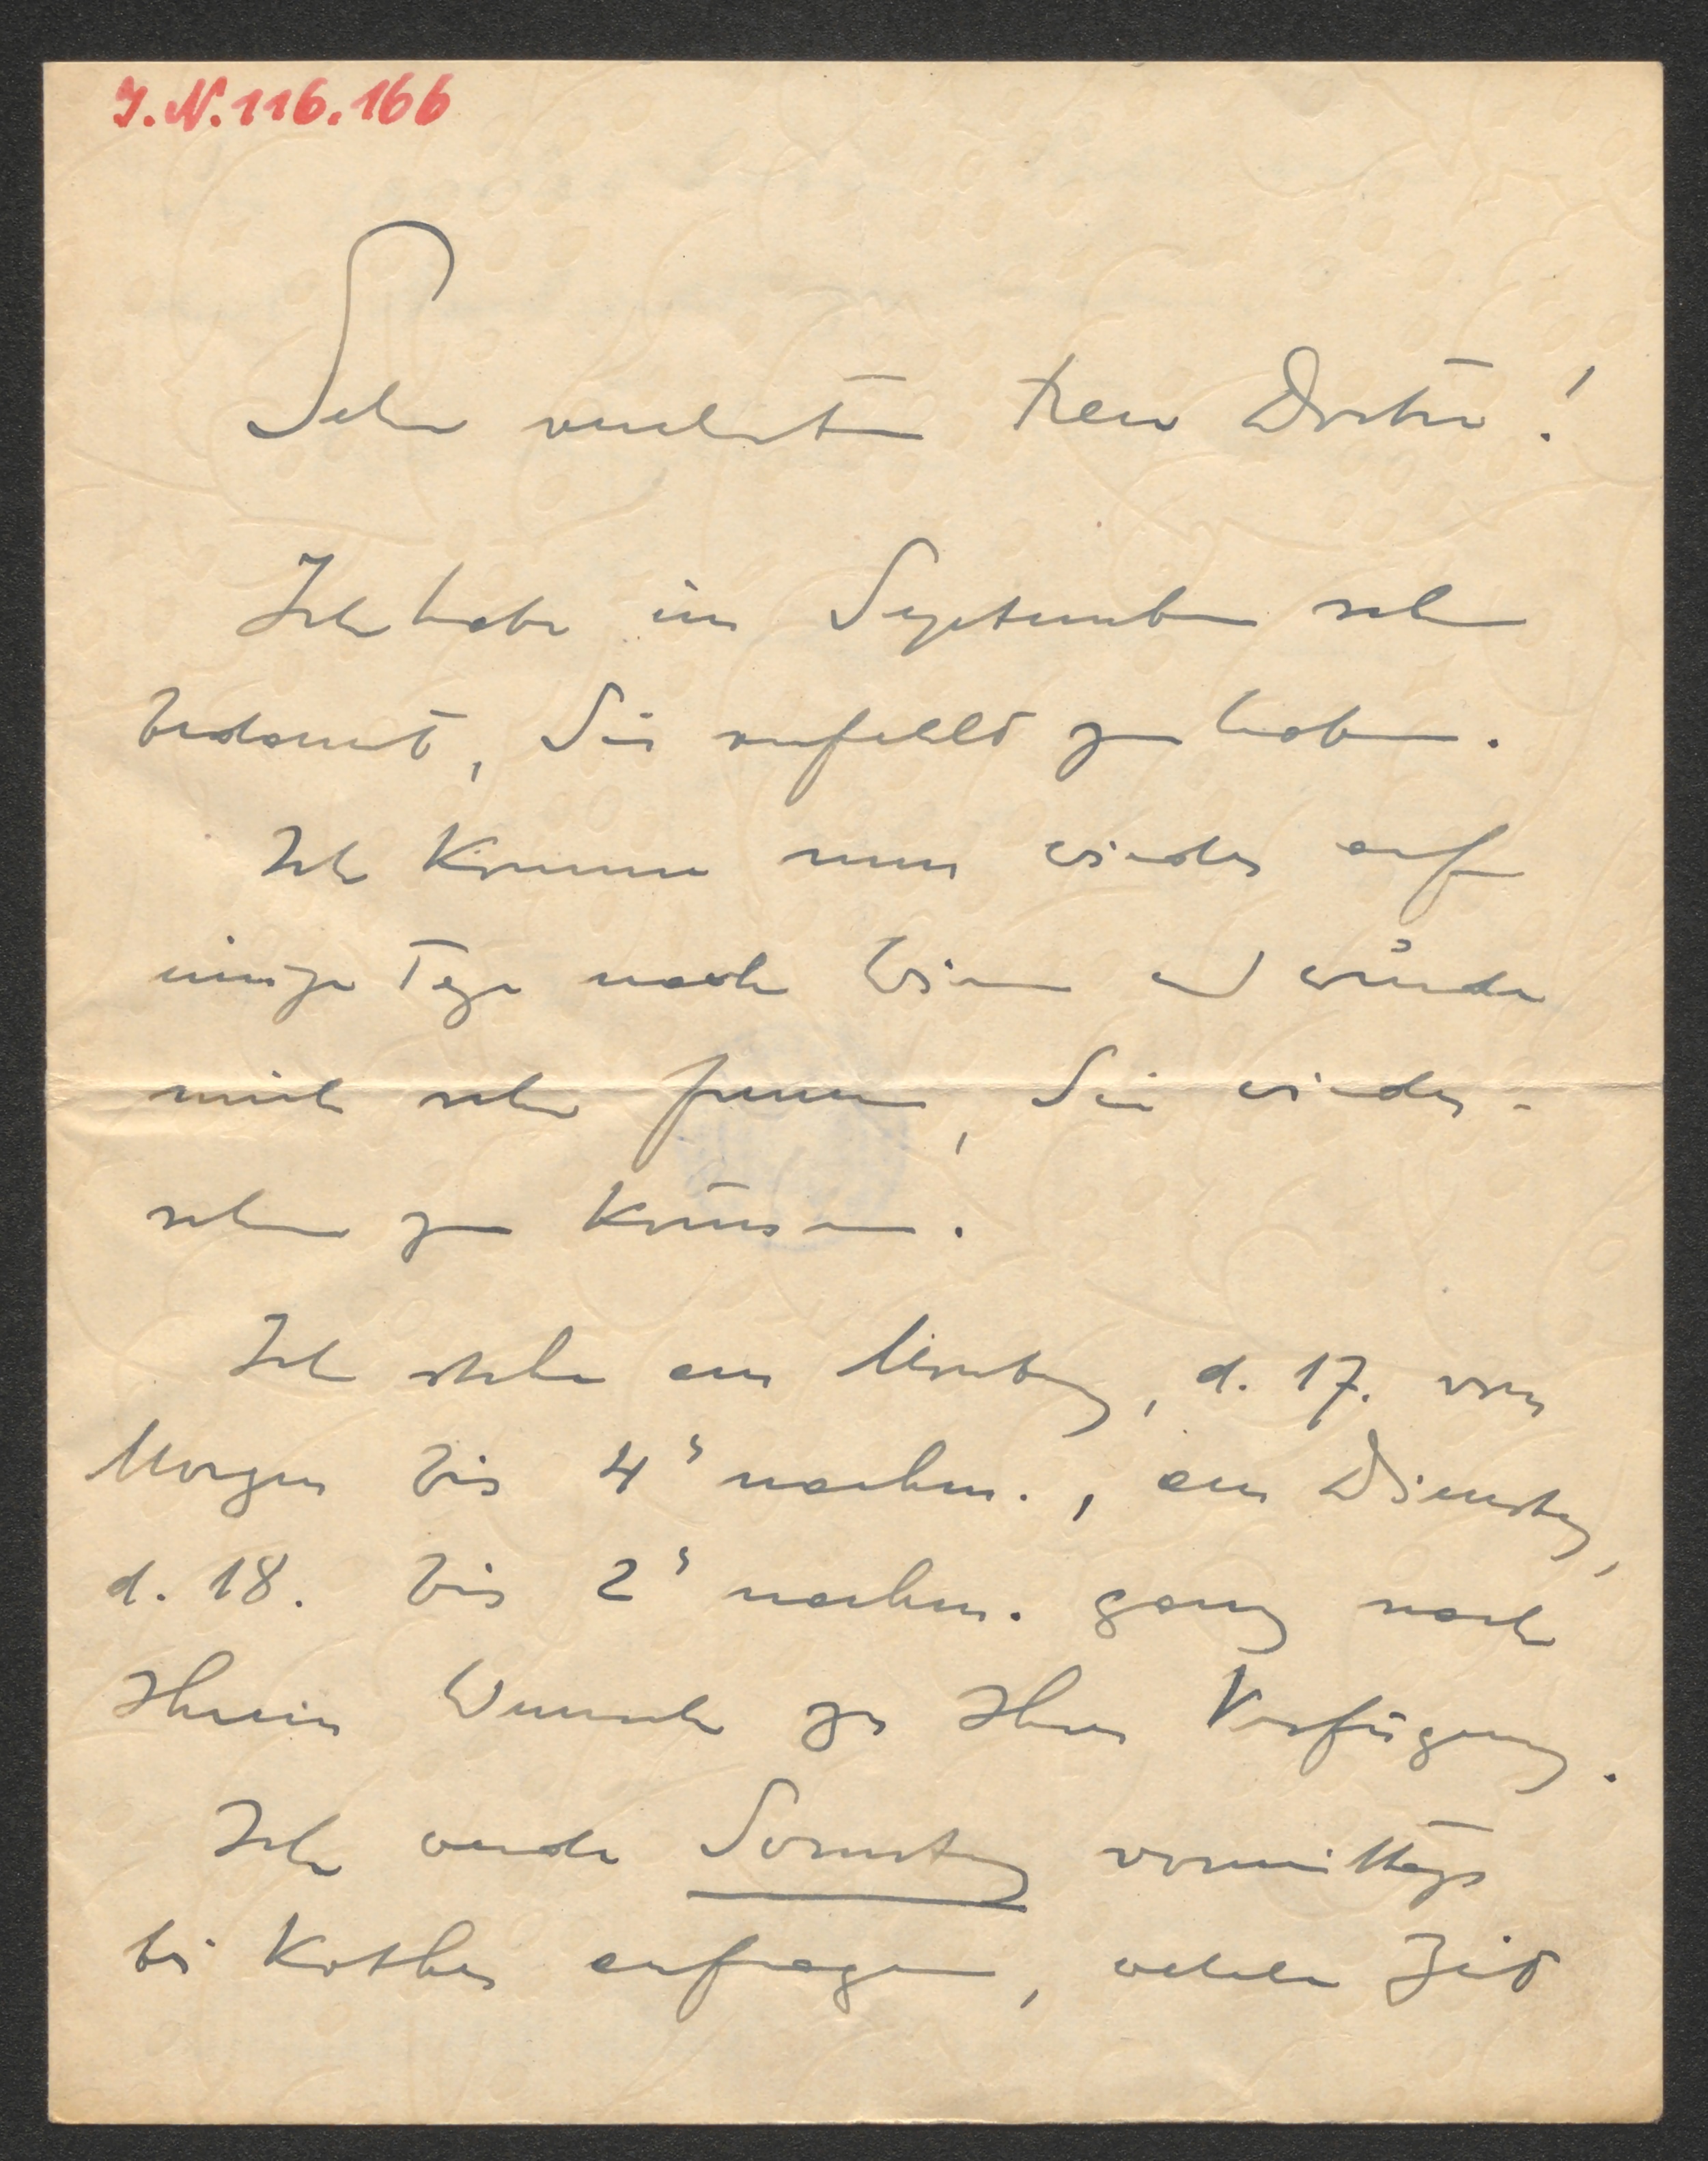 I.N.116.166
Sehr verehrter Herr Doctor!
Ich habe im September sehr
bedauert, Sie verfehlt zu haben.
Ich komme nun wieder auf
einige Tage nach Wien und würde
mich sehr freuen, Sie wieder-
sehen zu können.
Ich stehe am Montag, d. 17. vom
Morgen bis 4h nachm., am Dienstag,
d. 18. bis 2h nachm. ganz nach
Ihrem Wunsch zu Ihrer Verfügung.
Ich werde Sonntag vormittags
bei anfragen, welche Zeit